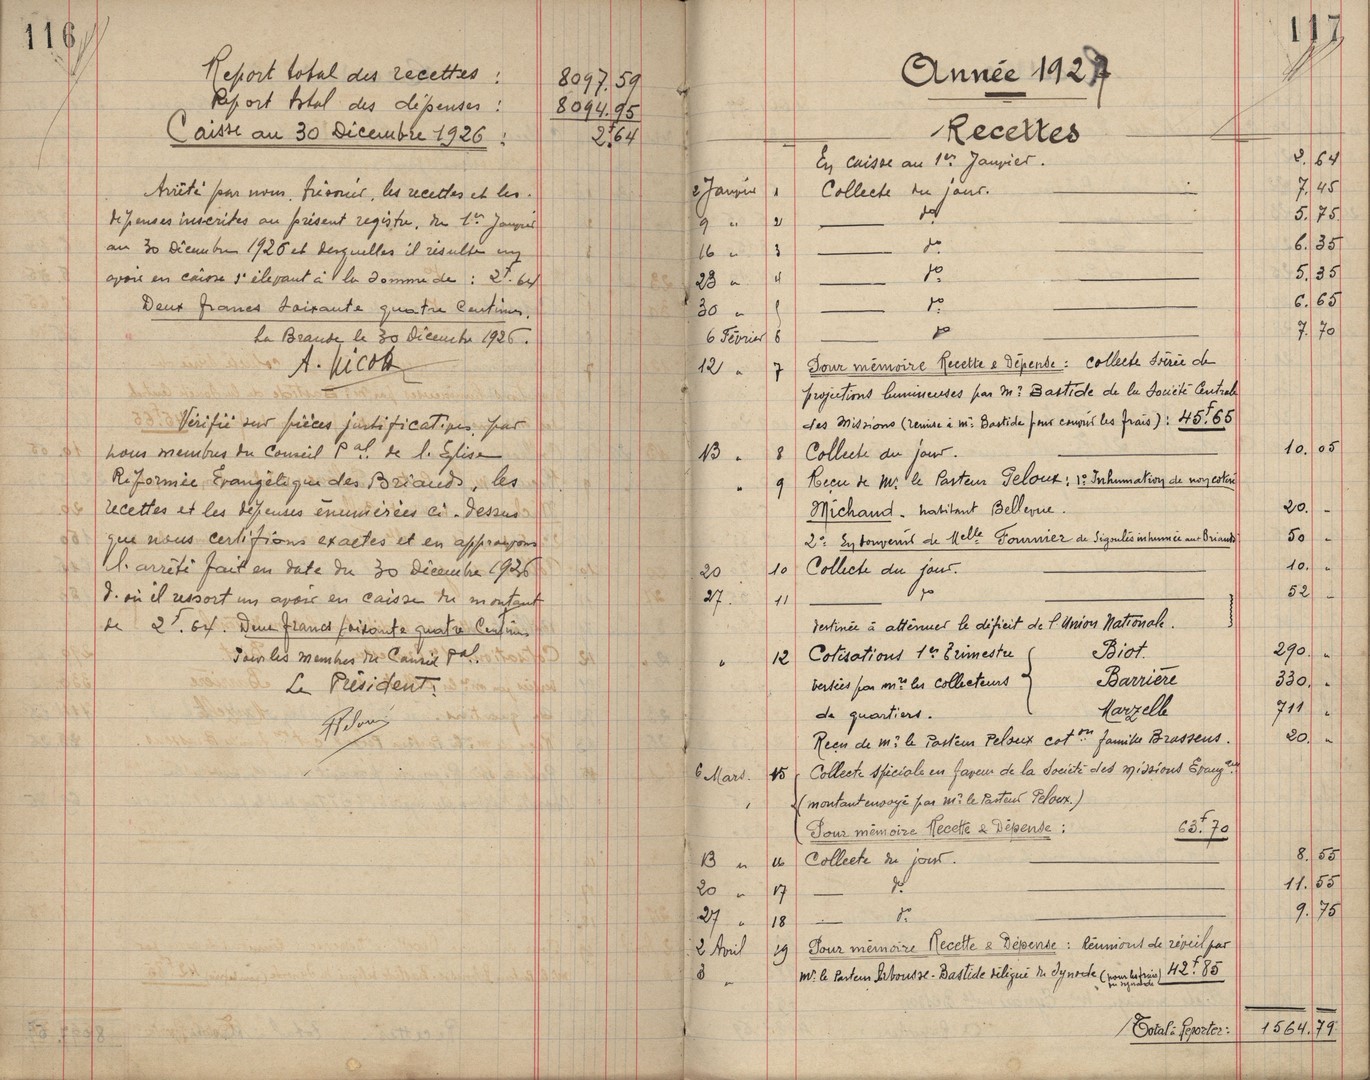 116
Report total des recettes : 8097.59
Report total des dépenses : 8094.95
Caisse au 30 Décembre 1926 : 2f.64
Arrêté par nous, trésorier, les recettes et les
dépenses inscrites au présent registre, du 1er Janvier
au 30 Décembre 1926 et desquelles il résulte un
avoir en caisse s'élevant à la somme de : 2f.64
Deux francs soixante quatre centimes.
La Braude le 30 Décembre 1926.
A. Nicolas
Vérifié sur pièces justificatives par
nous membres du Conseil Pal. de l'Eglise
Réformée Evangélique des Briands, les
recettes et les dépenses énumérées ci-dessus
que nous certifions exactes et en approuvons
l'arrêté fait en date du 30 Décembre 1926
d'où il ressort un avoir en caisse du montant
de 2f.64. Deux francs soixante quatre Centimes
Pour les membres du Conseil Pal.
Le Président:
117
Année 1927
Recettes
En caisse au 1er Janvier. 2.64
2 Janvier 1 Collecte du jour. 7.45
9 " 2 do 5.75
16 " 3 do 6.35
23 " 4 do 5.35
30 " 5 do 6.65
6 Février 6 do 7.70
12 " 7 Pour mémoire Recette & Dépense : collecte soirée de
projections lumineuses par Mr Bastide de la Société Centrale
des Missions (remise à Mr Bastide pour couvrir les frais) : 45f.65
13 " 8 Collecte du jour. 10.05
" 9 Reçu de Mr. le Pasteur Peloux : 1o Inhumation de non cotisé
Michaud - habitant Bellevue. 20. -
2o En souvenir de Melle Fournier de Sigoulès inhumée aux Briands 50 "
20 10 Collecte du jour. 10. "
27. 11 do 52 -
destinée à atténuer le déficit de l'Union Nationale.
" 12 Cotisations 1er Trimestre Biot. 290. "
versées par Mrs les collecteurs Barrière 330. "
de quartiers. Marzelle 711 "
Reçu de Mr le Pasteur Peloux coton famille Brassens. 20. "
6 Mars. 15 Collecte spéciale en faveur de la Société des Missions Evangques
(montant envoyé par Mr le Pasteur Peloux.)
Pour mémoire Recette & Dépense : 63f.70
13 " 16 Collecte du jour. 8.55
20 " 17 do 11.55
27 " 18 do 9.75
2 Avril 19 Pour mémoire Recette & Dépense : Réunions de réveil par
3 " Mr le Pasteur Arbousse-Bastide délégué du Synode (pour les frais du synode) 42f.85
Total à Reporter : 1564.79